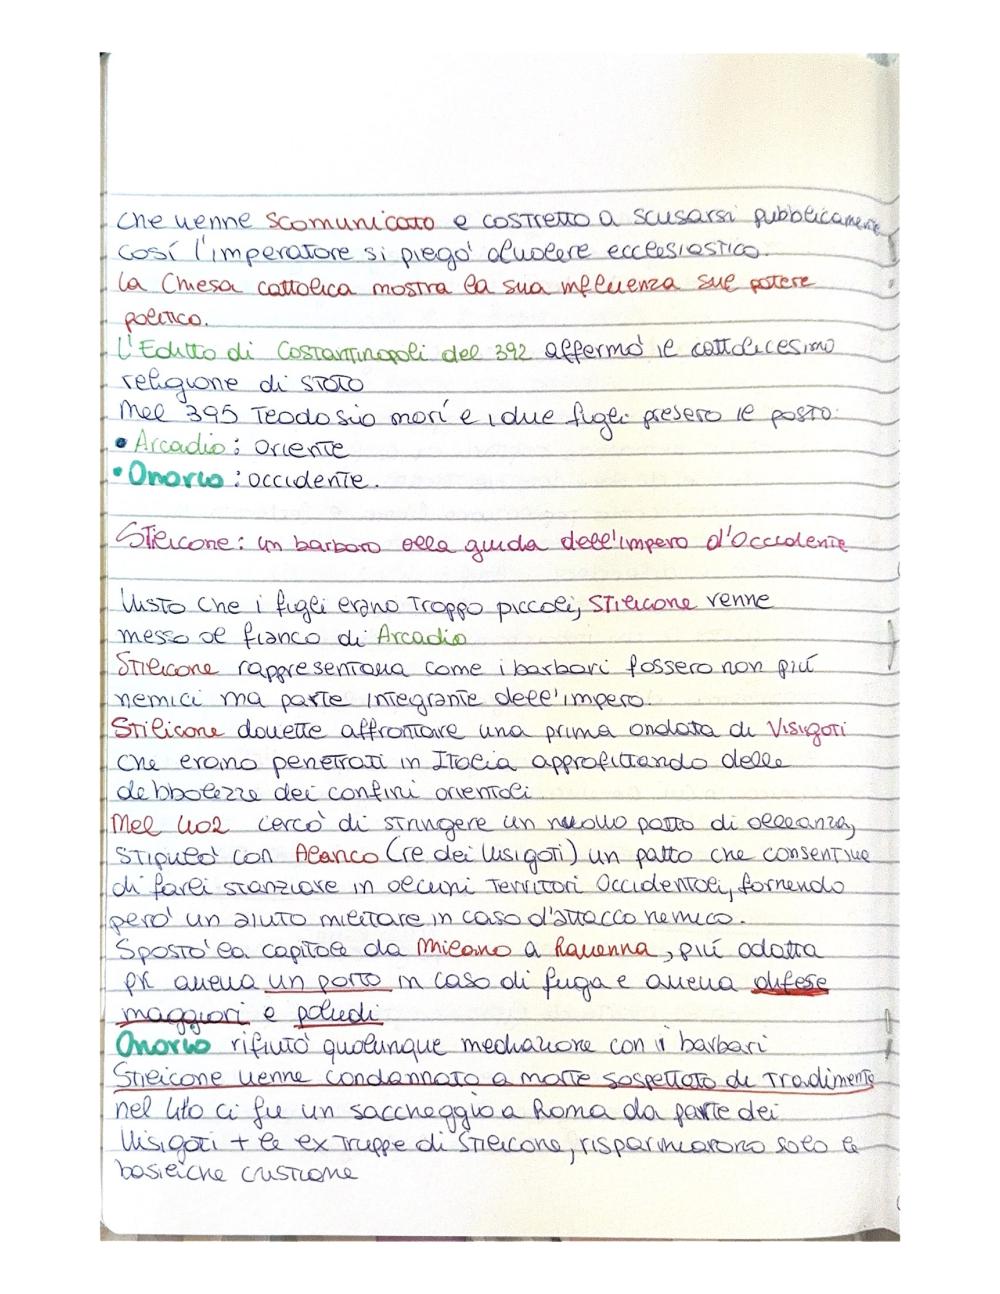 che venne scomunicato e costretto a scusarsi pubblicamente
così l'imperatore si piegò al volere ecclesiastico.
la Chiesa cattolica mostra la sua influenza sul potere
politico.
L'Editto di Costantinopoli del 392 affermò il cattolicesimo
religione di stato
Nel 395 Teodosio morí e i due figli presero il posto:
• Arcadio: oriente
• Onorio: occidente.
Stilicone: un barbaro alla guida dell'impero d'Occidente
Visto che i figli erano troppo piccoli, Stilicone venne
messo al fianco di Arcadio
Stilicone rappresentava come i barbari fossero non piú
nemici ma parte integrante dell'impero.
Stilicone dovette affrontare una prima ondata di Visigoti
che erano penetrati in Italia approfittando delle
debbolezze dei confini orientali
Nel 402 cercò di stringere un nuovo patto di alleanza,
stipulò con Alarico (re dei Visigoti) un patto che consentiva
di farli stanziare in alcuni territori Occidentali, fornendo
però un aiuto militare in caso d'attacco nemico.
Spostò la capitale da Milano a Ravenna, piú adatta
pk aveva un porto in caso di fuga e aveva difese
maggiori e paludi
Onorio rifiutò qualunque mediazione con i barbari
Stilicone venne condannato a morte sospettato di tradimento
nel 410 ci fu un saccheggio a Roma da parte dei
Visigoti + le ex truppe di Stilicone, risparmiarono solo le
basiliche cristiane